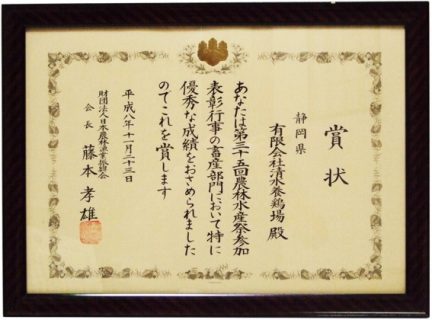 賞状
静岡県
有限会社清水養鶏場 殿
あなたは第三十五回農林水産祭参加
表彰行事の畜産部門において特に
優秀な成績をおさめられました
のでこれを賞します
平成八年十一月二十三日
財団法人日本農林漁業振興会
会長 藤本孝雄